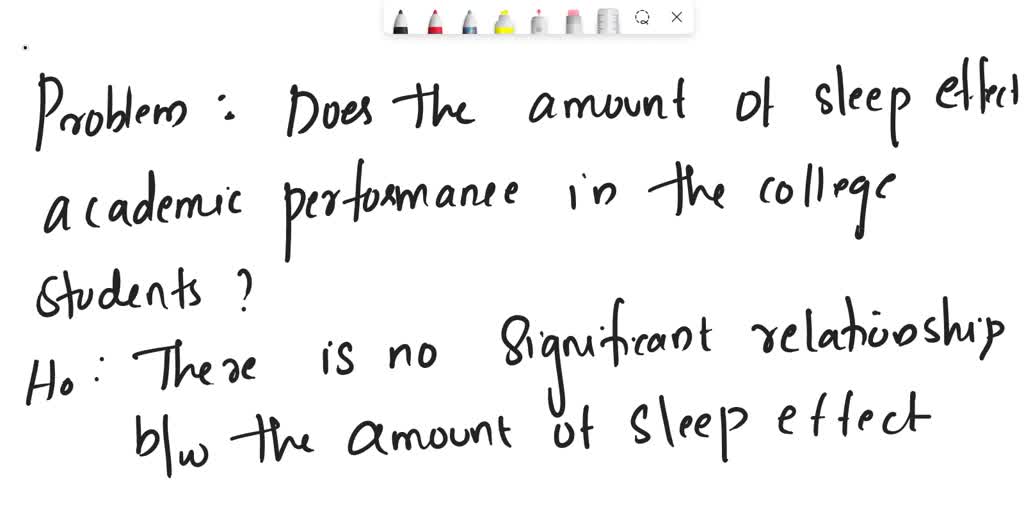 Problem : Does the amount of sleep effect
academic performance in the college
students ?
Ho : There is no significant relationship
b/w the amount of sleep effect